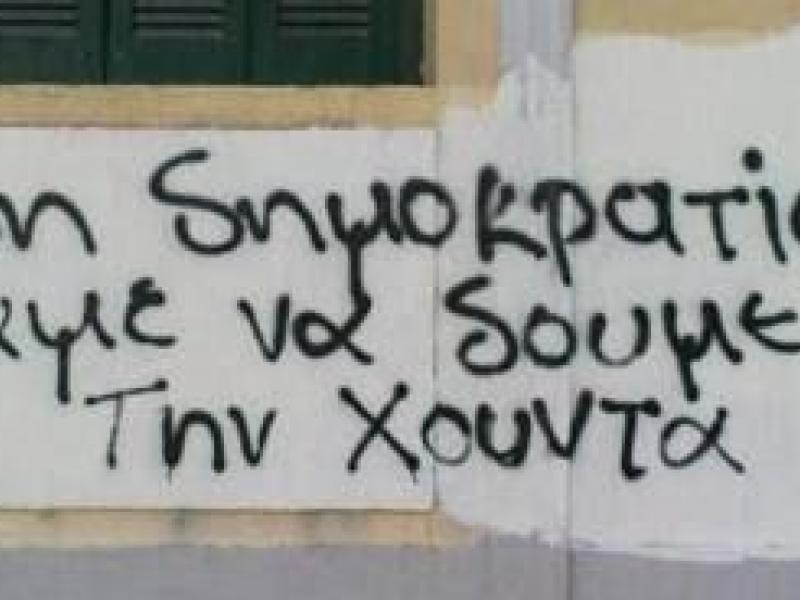 δημοκρατι
να δουμε
Την χουντα